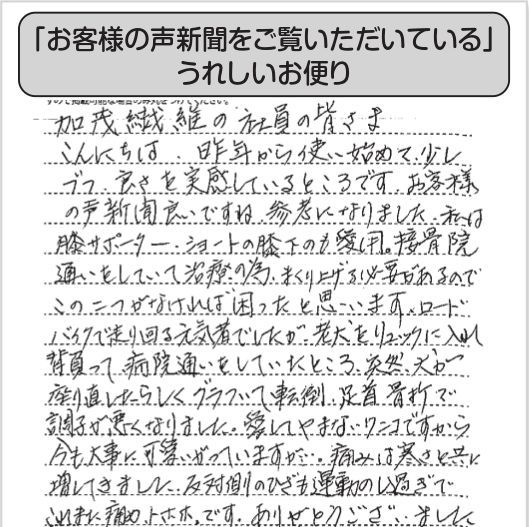 「お客様の声新聞をご覧いただいている」
うれしいお便り
加茂繊維の社員の皆さま
こんにちは、昨年から使い始めて、少し
ずつ、良さを実感しているところです。お客様
の声新聞良いですね。参考になりました。私は
膝サポーター、ショートの膝下のも愛用。接骨院
通いをしていて治療の為、まくり上げる必要があるので
この二つがなければ困ったと思います。ロード
バイクで走り回る元気者でしたが、老犬をリュックに入れ
背負って病院通いをしていたところ、突然、犬が
座り直したらしくグラついて転倒、足首骨折で
調子が悪くなりました。愛してやまないワンコですから
今も大事に可愛がっていますが…。痛みは寒さと共に
増してきました。反対側のひざも運動のし過ぎで
これまた痛め、トホホ、です。ありがとうございました